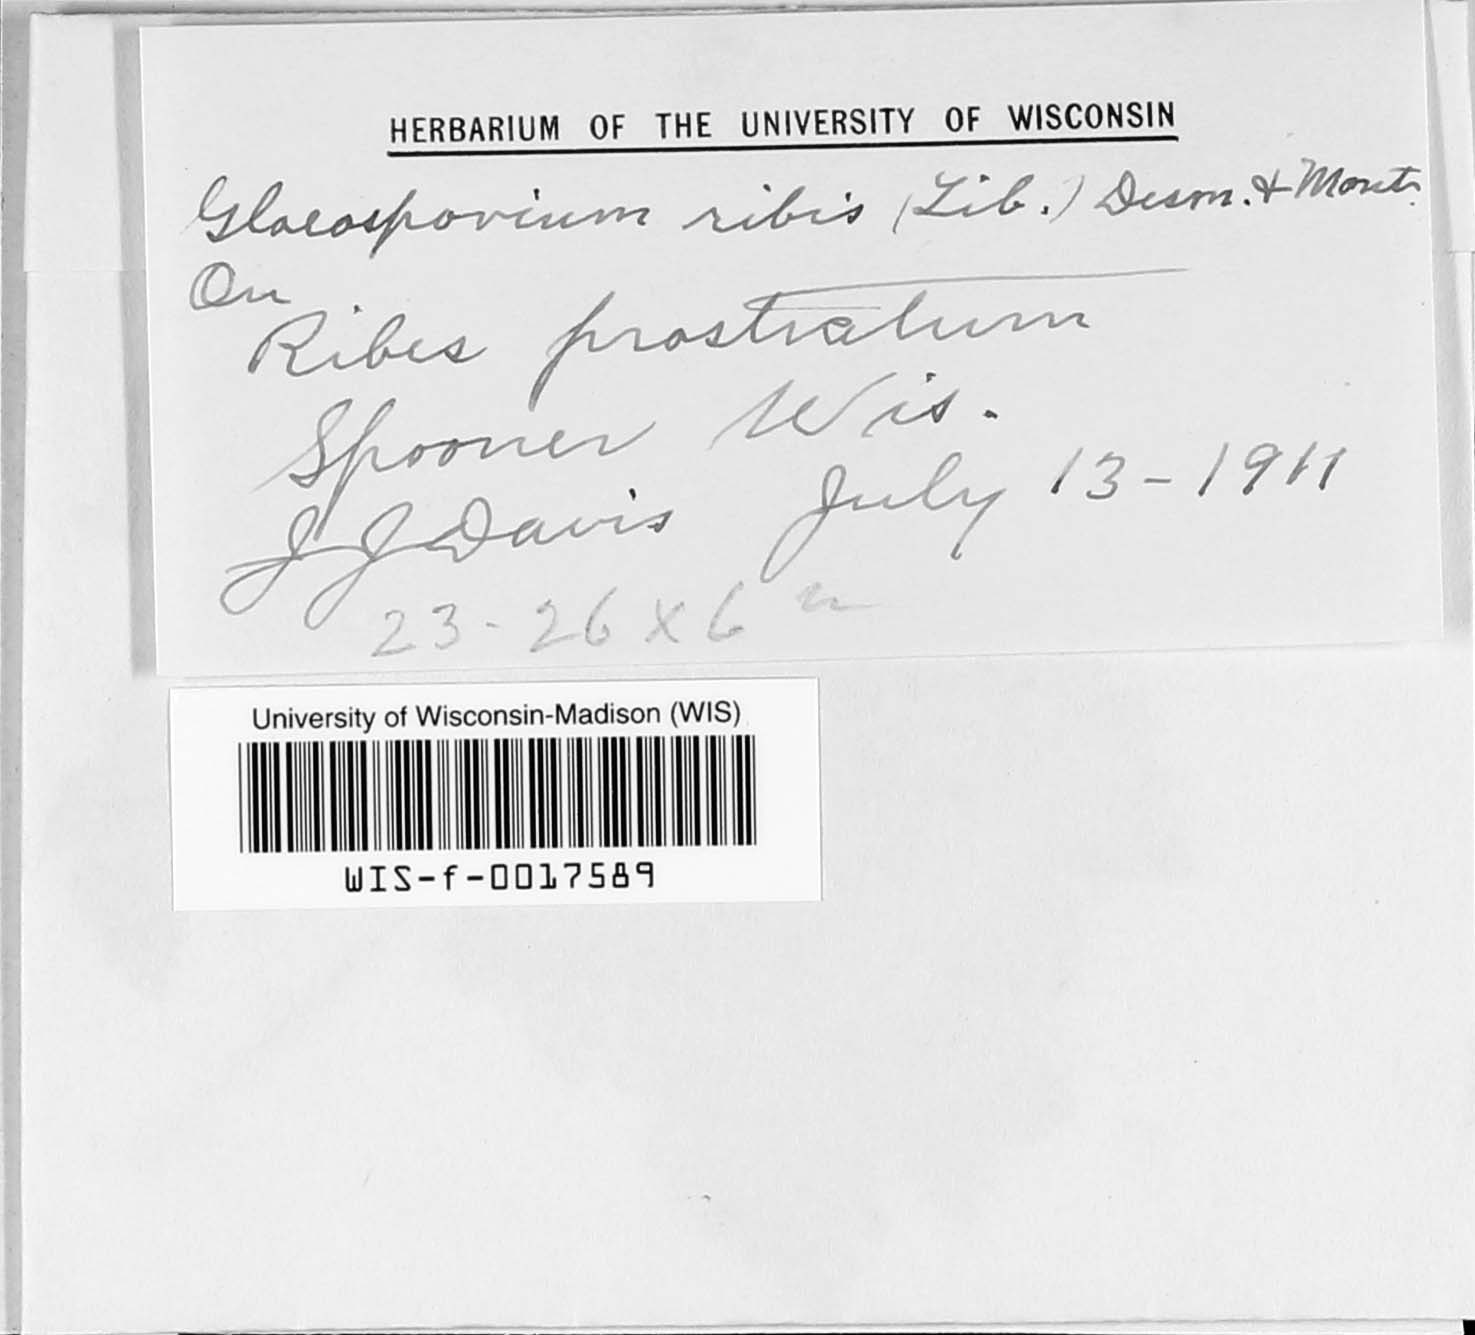 HERBARIUM OF THE UNIVERSITY OF WISCONSIN
Gloeosporium ribis (Lib.) Desm. & Mont.
On
Ribes prostratum
Spooner Wis.
J J Davis July 13-1911
23-26 x 6
University of Wisconsin-Madison (WIS)
WIS-f-0017589